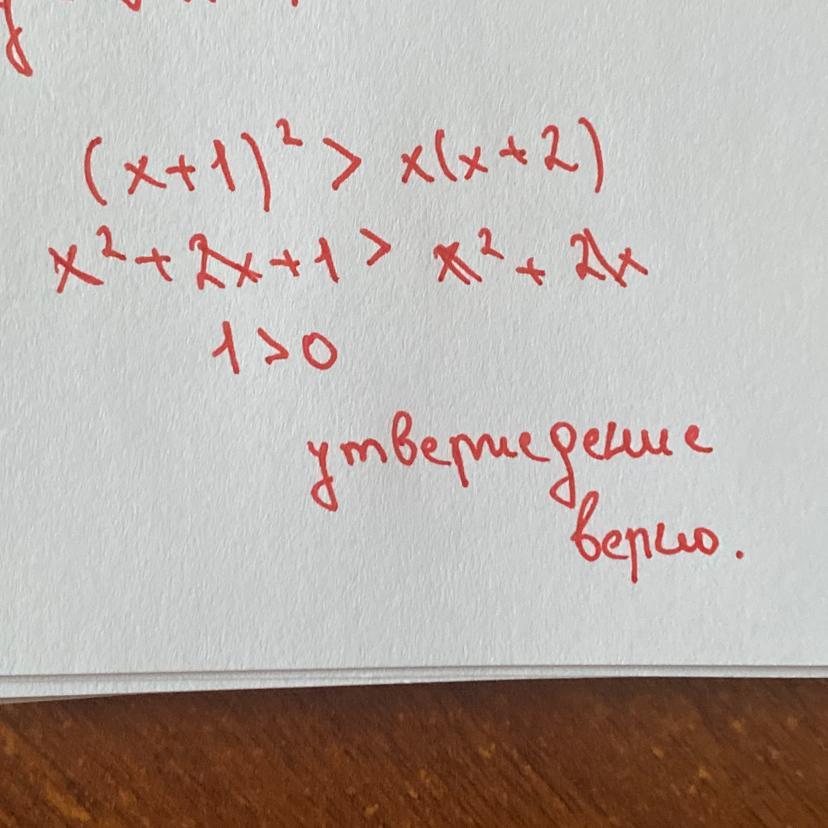 (x+1)² > x(x+2)
x²+2x+1 > x²+2x
1>0
утверждение
верно.